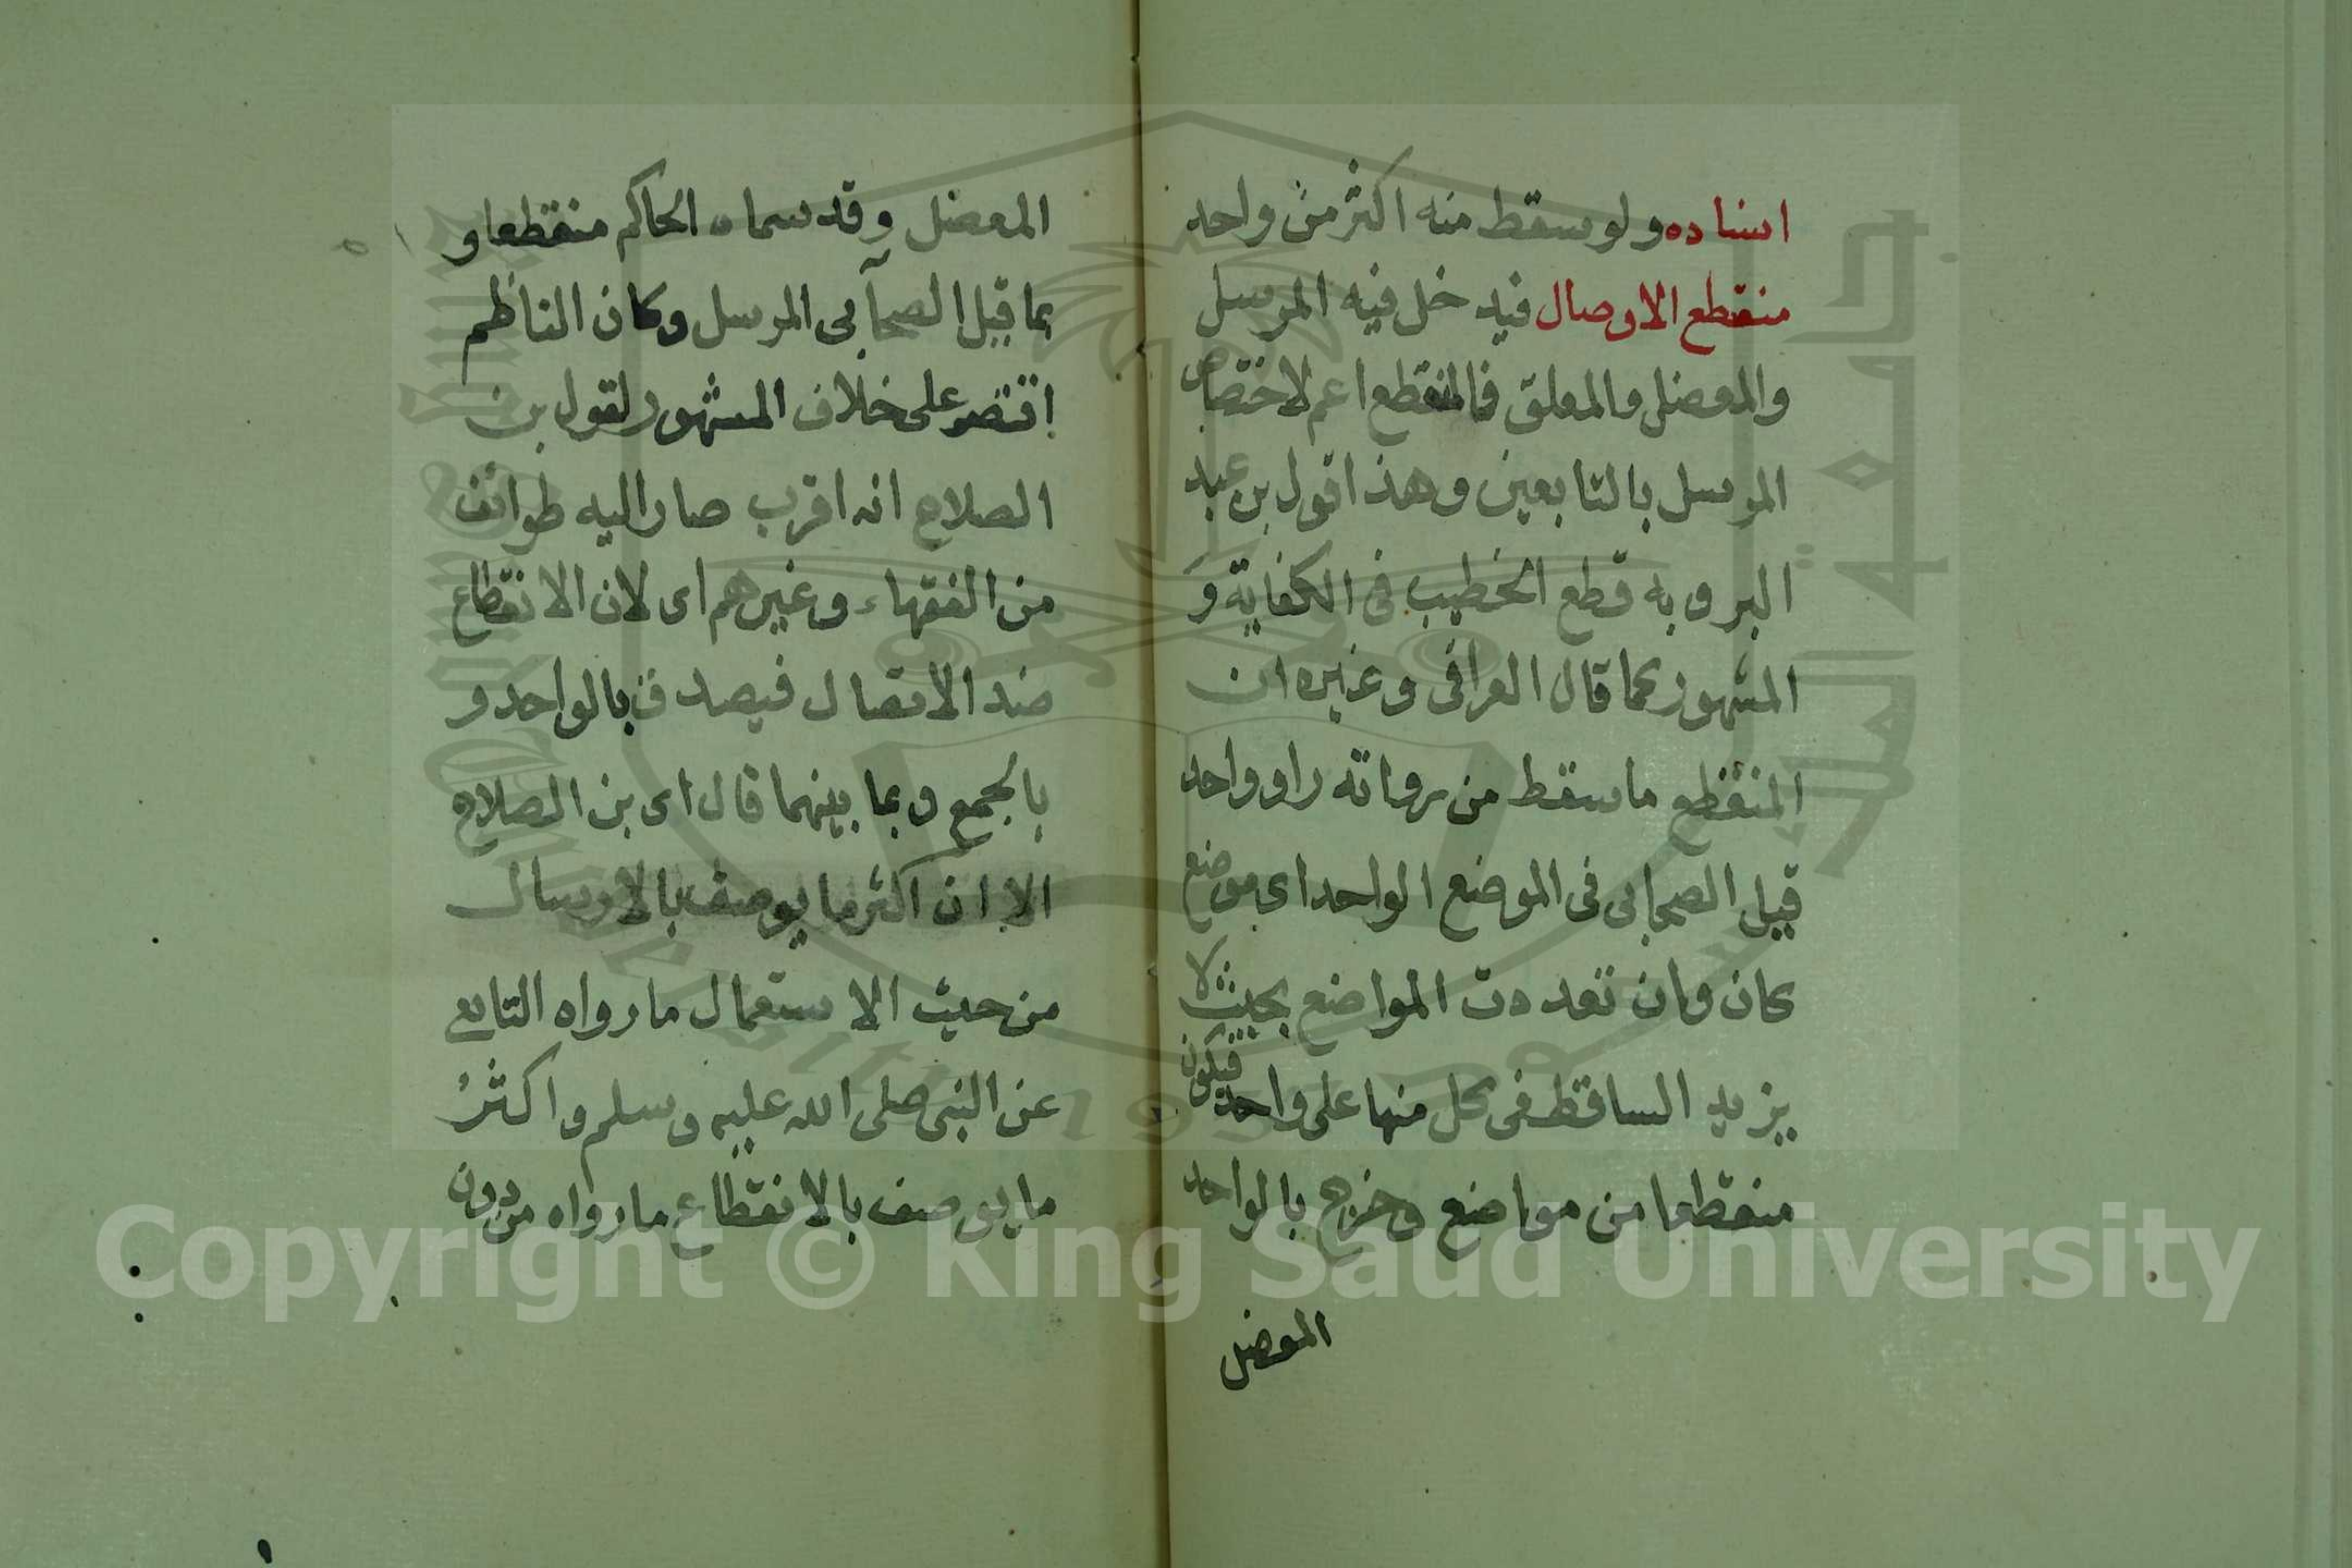 اسناده ولو سقط منه اكثر من واحد
منقطع الاوصال فيدخل فيه المرسل
والمعضل والمعلق فالمنقطع اعم لاختصاص
المرسل بالتابعين وهذا قول بن عبد
البر وبه قطع الخطيب فى الكفاية و
المشهور كما قال العراقى وغيره ان
المنقطع ما سقط من رواته راو واحد
قبل الصحابى فى الموضع الواحد اى موضع
كان وان تعددت المواضع بحيث لا
يزيد الساقط فى كل منها على واحد فيكون
منقطعا من مواضع وخرج بالواحد
المعضل
المعضل وقد سماه الحاكم منقطعا و
بما قبل الصحآبى المرسل وكان الناظم
اقتصر على خلاف المشهور لقول بن
الصلاح انه اقرب صار اليه طوائف
من الفقهاء وغيرهم اى لان الانقطاع
ضد الاتصال فيصدق بالواحد و
بالجمع وبما بينهما قال اى بن الصلاح
الا ان اكثر ما يوصف بالارسال
من حيث الاستعمال ما رواه التابعى
عن النبى صلى الله عليه وسلم واكثر
ما يوصف بالانقطاع ما رواه من دون
Copyright © King Saud University